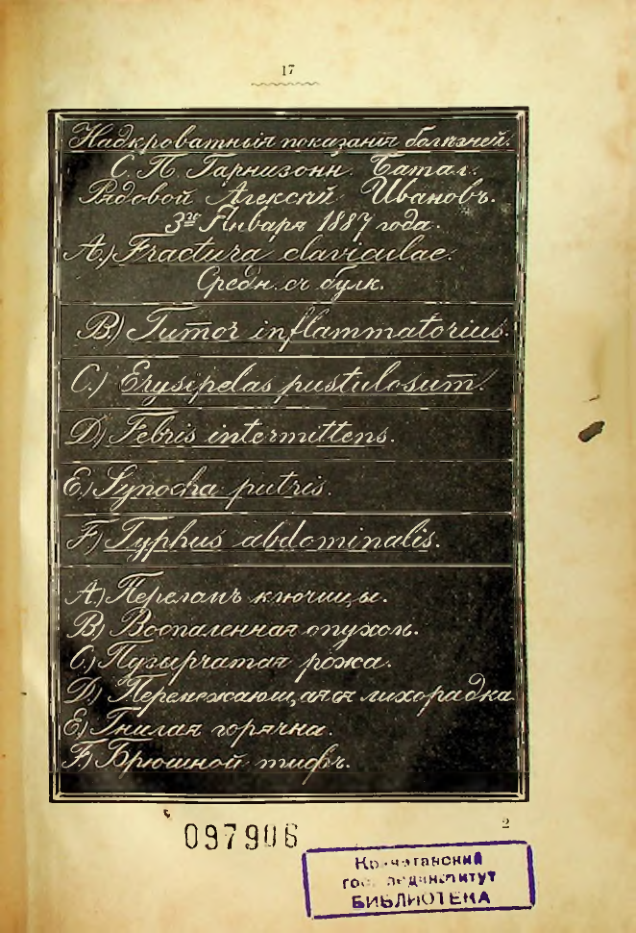 17
Надкроватныя показанія болѣзней.
С. П. Гарнизонн. Батал.
Рядовой Алексѣй Ивановъ.
3го Января 1887 года.
A.) Fractura claviculae.
Средн. съ булк.
B.) Tumor inflammatorius.
C.) Erysepelas pustulosum.
D.) Febris intermittens.
E.) Synocha putris.
F.) Typhus abdominalis.
A.) Переломъ ключицы.
B.) Воспаленная опухоль.
C.) Пузырчатая рожа.
D.) Перемежающаяся лихорадка
E.) Гнилая горячка.
F.) Брюшной тифъ.
097906
2
гос. пединститут
БИБЛИОТЕКА